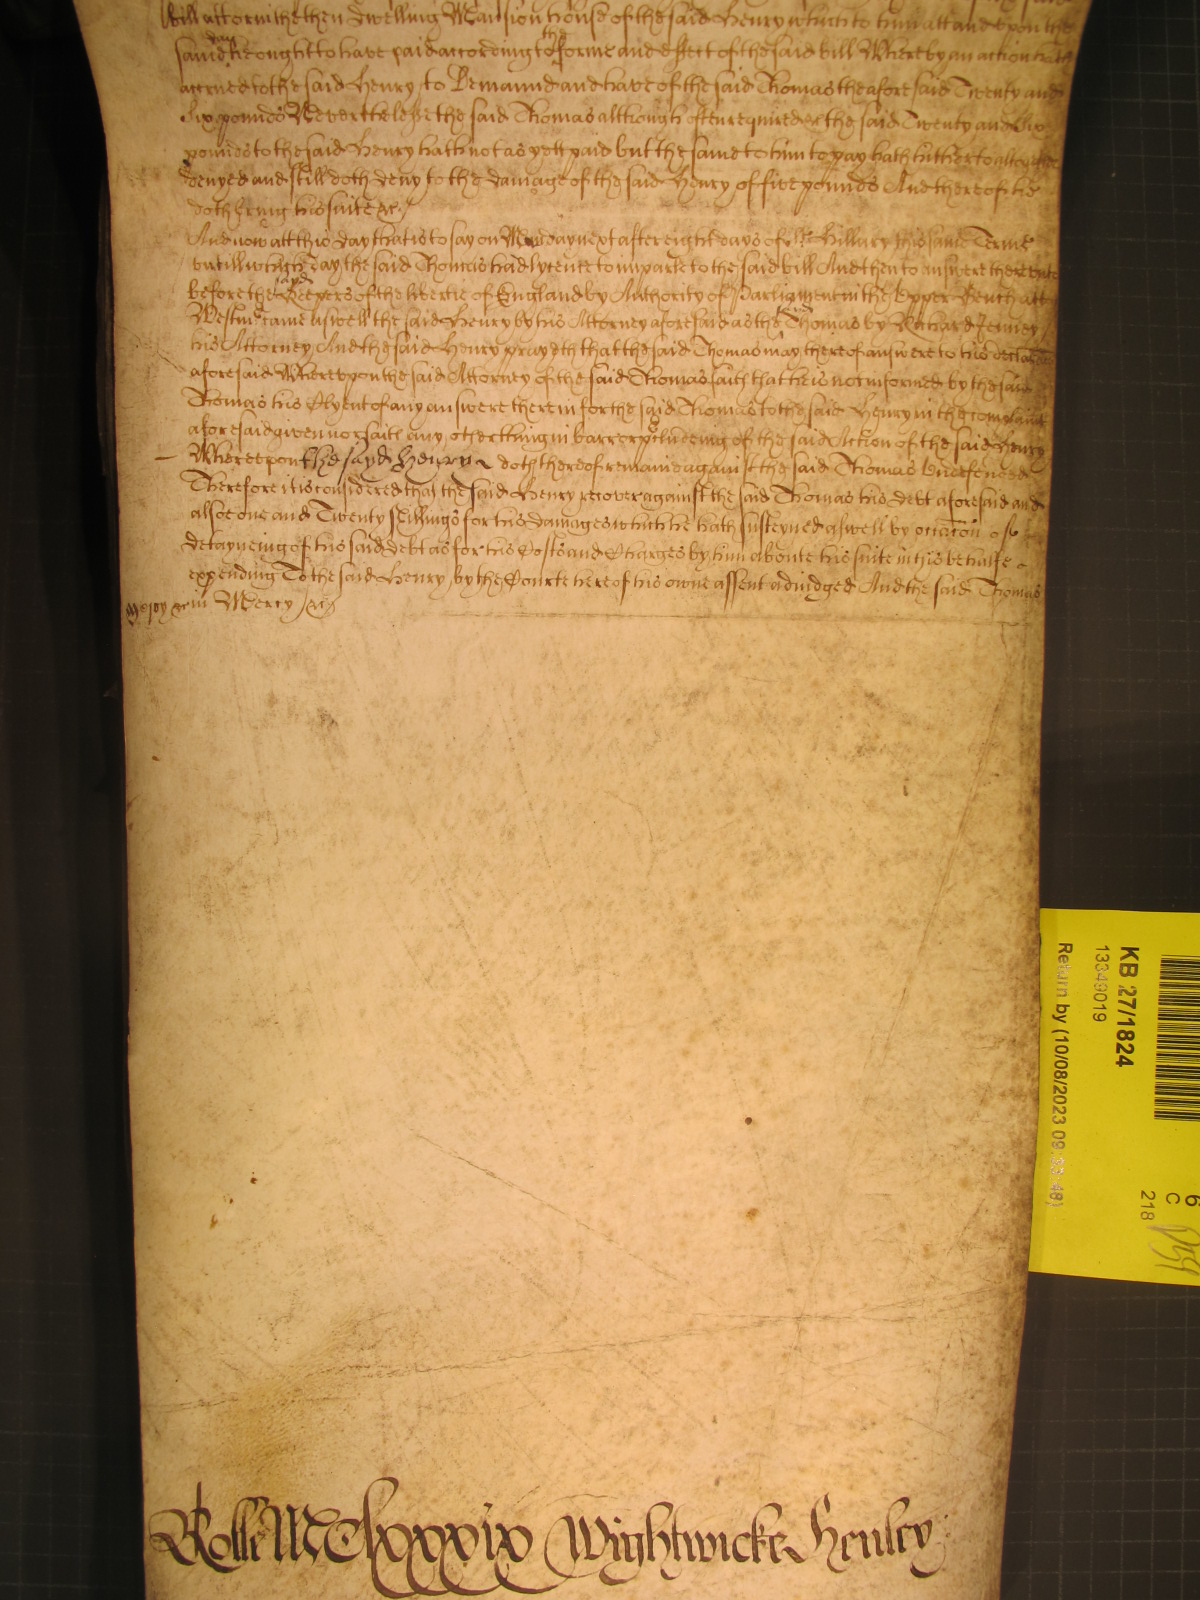 Bill att or in the then Dwelling Mansion house of the said Henry which to him att and upon the
same day he ought to have paid according to the forme and effect of the said bill Whereby an action hath
accrued to the said Henry to Demaund and have of the said Thomas the aforesaid Twenty and
six pounds Neverthelesse the said Thomas although often required &c the said Twenty and six
pounds to the said Henry hath not as yett paid but the same to him to pay hath hitherto altogether
denyed and still doth deny to the damage of the said Henry of five pounds And thereof he
doth bring his suite &c /
And now att this day that is to say on Munday next after eight dayes of St Hillary this same Terme
untill which day the said Thomas had lycence to imparle to the said bill And then to answere thereunto
before the said Keepers of the libertie of England by Authority of Parliament in the Upper Bench att
Westmr came aswell the said Henry by his Attorney aforesaid as the said Thomas by Richard Jenney
his Attorney And the said Henry prayeth that the said Thomas may thereof answere to his declaracon
aforesaid Whereupon the said Attorney of the said Thomas saith that he is not informed by the said
Thomas his Clyent of any answere therein for the said Thomas to the said Henry in the complaint
aforesaid given nor saith any other thing in barre or precludeing of the said Action of the said Henry
Whereupon the sayd Henry doth thereof remaine against the said Thomas Undefended
Therefore it is considered that the said Henry recover against the said Thomas his debt aforesaid and
alsoe one and Twenty shillings for his damages which he hath susteyned aswell by occacon of
detayneing of his said debt as for his Costs and Charges by him aboute his suite in this behalfe
expending To the said Henry by the Courte here of his owne assent adiudged And the said Thomas
Mercy in Mercy &c
Rolle MClxxxix Wightwicke Henley
KB 27/1824
13349019
Return by (10/08/2023 09: :48)
6
C
218